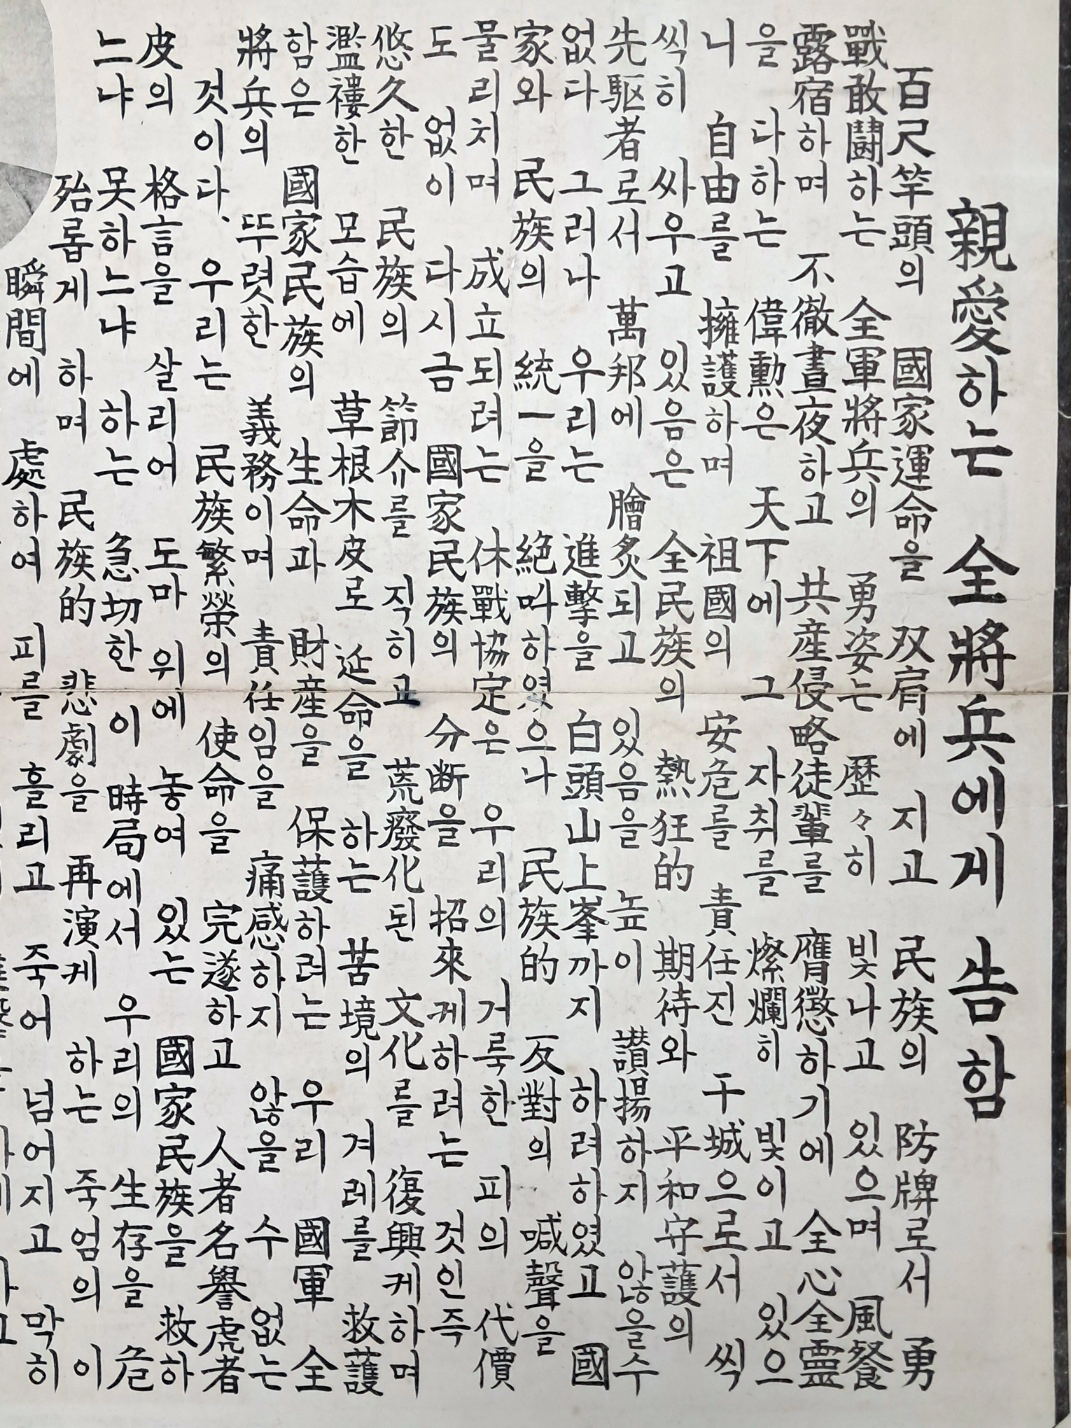 親愛하는 全將兵에게 告함
百尺竿頭의 國家運命을 双肩에 지고 民族의 防牌로서 勇
戰敢鬪하는 全軍將兵의 勇姿는 歷々히 빛나고 있으며 風餐
露宿하며 不徹晝夜하고 共産侵略徒輩를 膺懲하기에 全心全靈
을 다하는 偉勳은 天下에 그 자취를 燦爛히 빛이고 있으
니 自由를 擁護하며 祖國의 安危를 責任진 干城으로서 씩
씩히 싸우고 있음은 全民族의 熱狂的 期待와 平和守護의
先驅者로서 萬邦에 膾炙되고 있음을 높이 讚揚하지 않을수
없다 그러나 우리는 進擊을 白頭山上峯까지 하려하였고 國
家와 民族의 統一을 絶叫하였으나 民族的 反對의 喊聲을
물리치며 成立되려는 休戰協定은 우리의 거룩한 피의 代價
도 없이 다시금 國家民族의 分断을 招來게하려는 것인즉
悠久한 民族의 節介를 직히고 荒廢化된 文化를 復興케하며
濫褸한 모습에 草根木皮로 延命을 하는 苦境의 겨레를 救護
함은 國家民族의 生命과 財産을 保護하려는 우리 國軍 全
將兵의 뚜렷한 義務이며 責任임을 痛感하지 않을 수 없는
것이다. 우리는 民族繁榮의 使命을 完遂하고 人者名譽虎者
皮의 格言을 살리어 도마 위에 놓여 있는 國家民族을 救하
느냐 못하느냐 하는 急切한 이 時局에서 우리의 生存을 危
殆롭게 하며 民族的 悲劇을 再演케 하는 죽엄의 이
瞬間에 處하여 피를 흘리고 죽어 넘어지고 막히